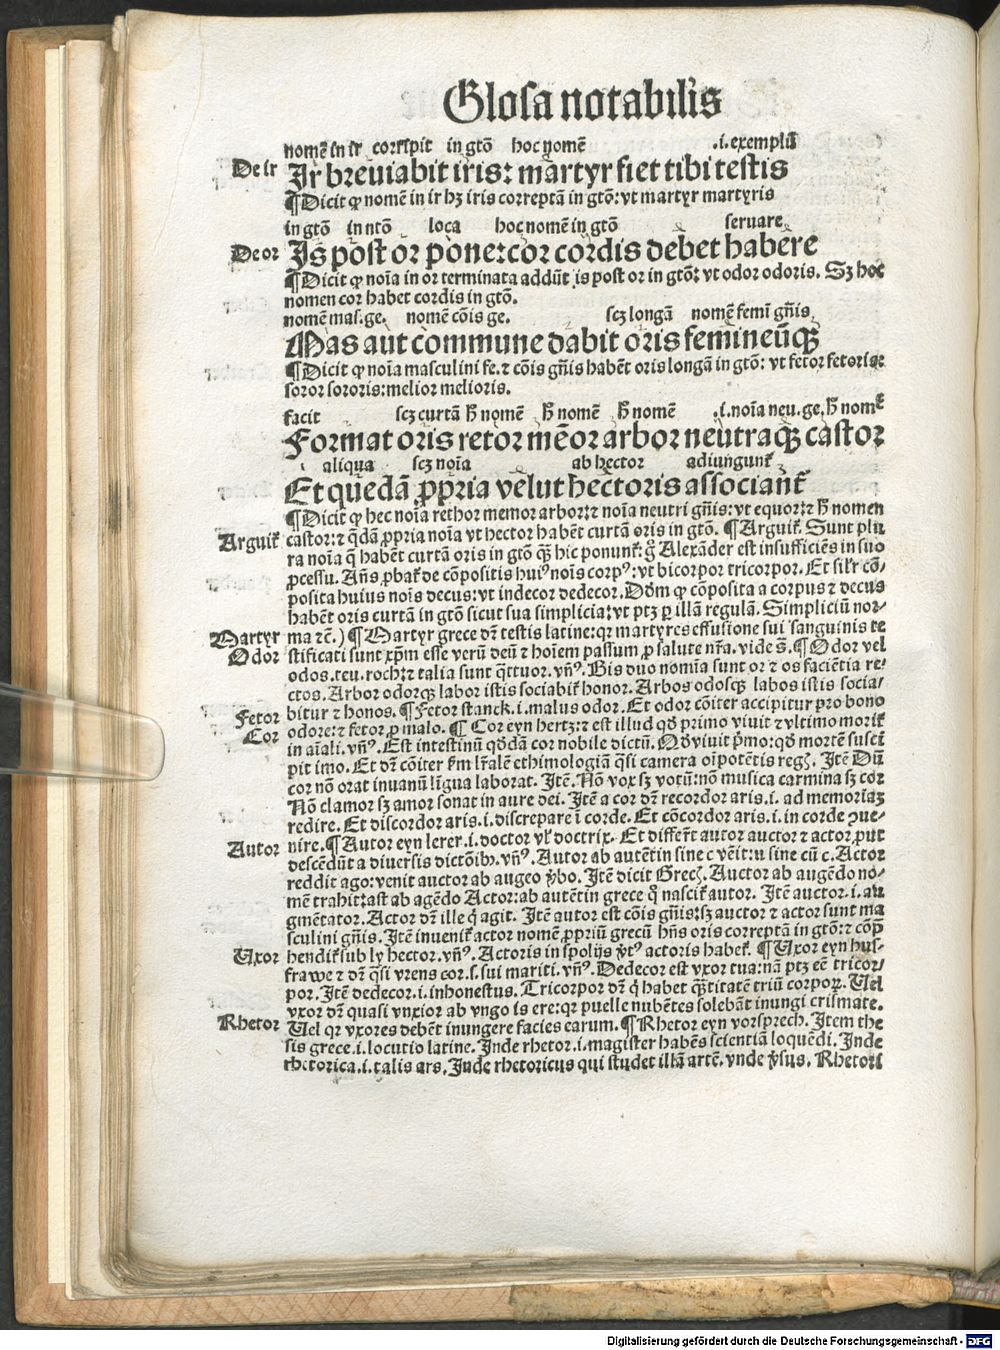 Glosa notabilis
nomē in ir corripit in gtō hoc nomē .i. exemplū
De ir
Ir breuiabit iris: martyr fiet tibi testis
¶ Dicit ꝙ nomē in ir hꝫ iris correptā in gtō: vt martyr martyris
in gtō in ntō loca hoc nomē in gtō seruare
De or
Is post or pone: cor cordis debet habere
¶ Dicit ꝙ noīa in or terminata addūt is post or in gtō: vt odor odoris. Sꝫ hoc
nomen cor habet cordis in gtō.
nomē mas. ge. nomē cōis ge. scꝫ longā nomē femi gn̄is
Mas aut commune dabit oris femineūqꝫ
¶ Dicit ꝙ noīa masculini fe. ⁊ cōis gn̄is habēt oris longā in gtō: vt fetor fetoris:
soror sororis: melior melioris.
facit scꝫ curtā h̄ nomē h̄ nomē h̄ nomē .i. noīa neu. ge. h̄ nomē
Format oris retor mēor arbor neutraqꝫ castor
aliqua scꝫ noīa ab hector adiungunt᷑
Et quedā ꝓpria velut hectoris associant᷑
¶ Dicit ꝙ hec noīa rethor memor arbor: ⁊ noīa neutri gn̄is: vt equor: ⁊ h̄ nomen
Arguit᷑
castor: ⁊ q̄dā ꝓpria noīa vt hector habēt curtā oris in gtō. ¶ Arguit᷑. Sunt plu
ra noīa q̄ habēt curtā oris in gtō qꝫ hic ponunt᷑: gͦ Alexāder est insufficiēs in suo
ꝓcessu. Añs ꝓbat᷑ de cōpositis huiꝰ noīs corpꝰ: vt bicorpor tricorpor. Et silr̄ cō-
posita huius noīs decus: vt indecor dedecor. Dōm ꝙ cōposita a corpus ⁊ decus
habēt oris curtā in gtō sicut sua simplicia: vt ptꝫ ꝑ illā regulā. Simpliciū nor-
Martyr
ma ⁊cͣ.) ¶ Martyr grece dr̄ testis latine: qr martyres effusione sui sanguinis te
Odor
stificati sunt xp̄m esse verū deū ⁊ hoīem passum ꝓ salute nr̄a. vide s̄. ¶ Odor vel
odos. teu. roch: ⁊ talia sunt q̄ttuor. vn̄ꝰ. Bis duo nomīa sunt or ⁊ os faciētia re-
ctos. Arbor odorqꝫ labor istis sociabit᷑ honor. Arbos odosqꝫ labos istis socia-
Fetor
bitur ⁊ honos. ¶ Fetor stanck .i. malus odor. Et odor cōiter accipitur pro bono
Cor
odore: ⁊ fetor ꝓ malo. ¶ Cor eyn hertz: ⁊ est illud qd̄ primo viuit ⁊ vltimo morit᷑
in aīali. vn̄ꝰ. Est intestinū qd̄dā cor nobile dictū. Qd̄ viuit pͥmo: qd̄ mortē susci
pit imo. Et dr̄ cōiter fm lr̄alē ethimologiā q̄si camera oīpotētis regꝭ. Itē Dū
cor nō orat inuanū līgua laborat. Itē. Nō vox sꝫ votū: nō musica carmina sꝫ cor
Nō clamor sꝫ amor sonat in aure dei. Itē a cor dr̄ recordor aris .i. ad memoriaꝫ
redire. Et discordor aris .i. discrepare ī corde. Et cōcordor aris .i. in corde ꝯue-
Autor
nire. ¶ Autor eyn lerer .i. doctor vl̓ doctrix. Et differt autor auctor ⁊ actor ꝓut
descēdūt a diuersis dictōibꝫ. vn̄ꝰ. Autor ab autētin sine c vēit: u sine cū c. Actor
reddit ago: venit auctor ab augeo v̓bo. Itē dicit Grecꝭ. Auctor ab augēdo no-
mē trahit: ast ab agēdo Actor: ab autētin grece qͦ nascit᷑ autor. Itē auctor .i. au
gmētator. Actor dr̄ ille qͥ agit. Itē autor est cōis gn̄is: sꝫ auctor ⁊ actor sunt ma
sculini gn̄is. Itē inuenit᷑ actor nomē ꝓpriū grecū hn̄s oris correptā in gtō: ⁊ cōp̄
Uxor
hendit᷑ sub ly hector. vn̄ꝰ. Actoris in spolijs v̓tꝰ actoris habet᷑. ¶ Uxor eyn hus-
frawe ⁊ dr̄ q̄si vrens cor .s. sui mariti. vn̄ꝰ. Dedecor est vxor tua: nā ptꝫ eē tricor-
por. Itē dedecor .i. inhonestus. Tricorpor dr̄ qͥ habet qͣtitatē triū corpoꝝ. Uel
vxor dr̄ quasi vnxior ab vngo is ere: qr puelle nubētes solebāt inungi crismate.
Rhetor
Uel qr vxores debēt inungere facies earum. ¶ Rhetor eyn vorsprech. Item the
sis grece .i. locutio latine. Inde rhetor .i. magister habēs scientiā loquēdi. Inde
rhetorica .i. talis ars. Inde rhetoricus qui studet illā artē. vnde v̓sus. Rhetori
Digitalisierung gefördert durch die Deutsche Forschungsgemeinschaft - DFG